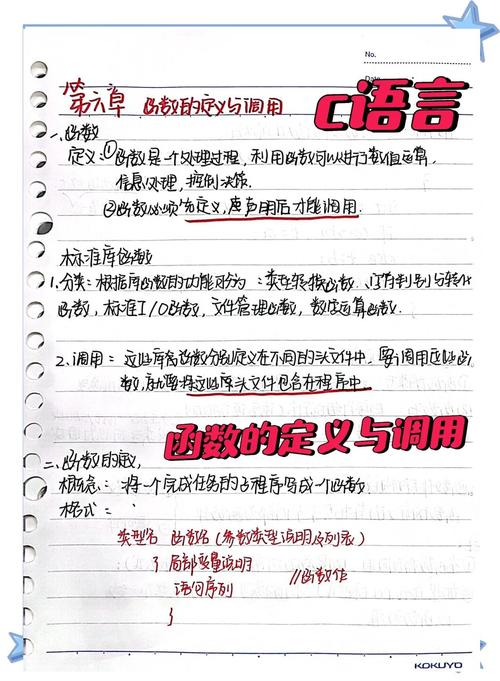 No.
Date
第六章 函数的定义与调用
C语言
一、函数
定义:①函数是一个处理过程,利用函数可以进行数值运算,
信息处理,控制决策.
②函数必须先定义,声明后才能调用.
标准库函数
1.分类:根据库函数的功能可分为:类型转换函数,字符判别与转化
函数,标准I/O函数,文件管理函数,数学运算函数.
2.调用:这些库函数分别定义在不同的头文件中,要调用这些函
数,就要将这些库头文件包含在程序中.
函数的定义与调用
二、函数的定义,
概念:将一个完成任务的子程序写成一个函数.
格式:
类型名 函数名(参数类型说明序列表)
{ 局部变量说明
语句序列 //函数体
}
KOKUYO